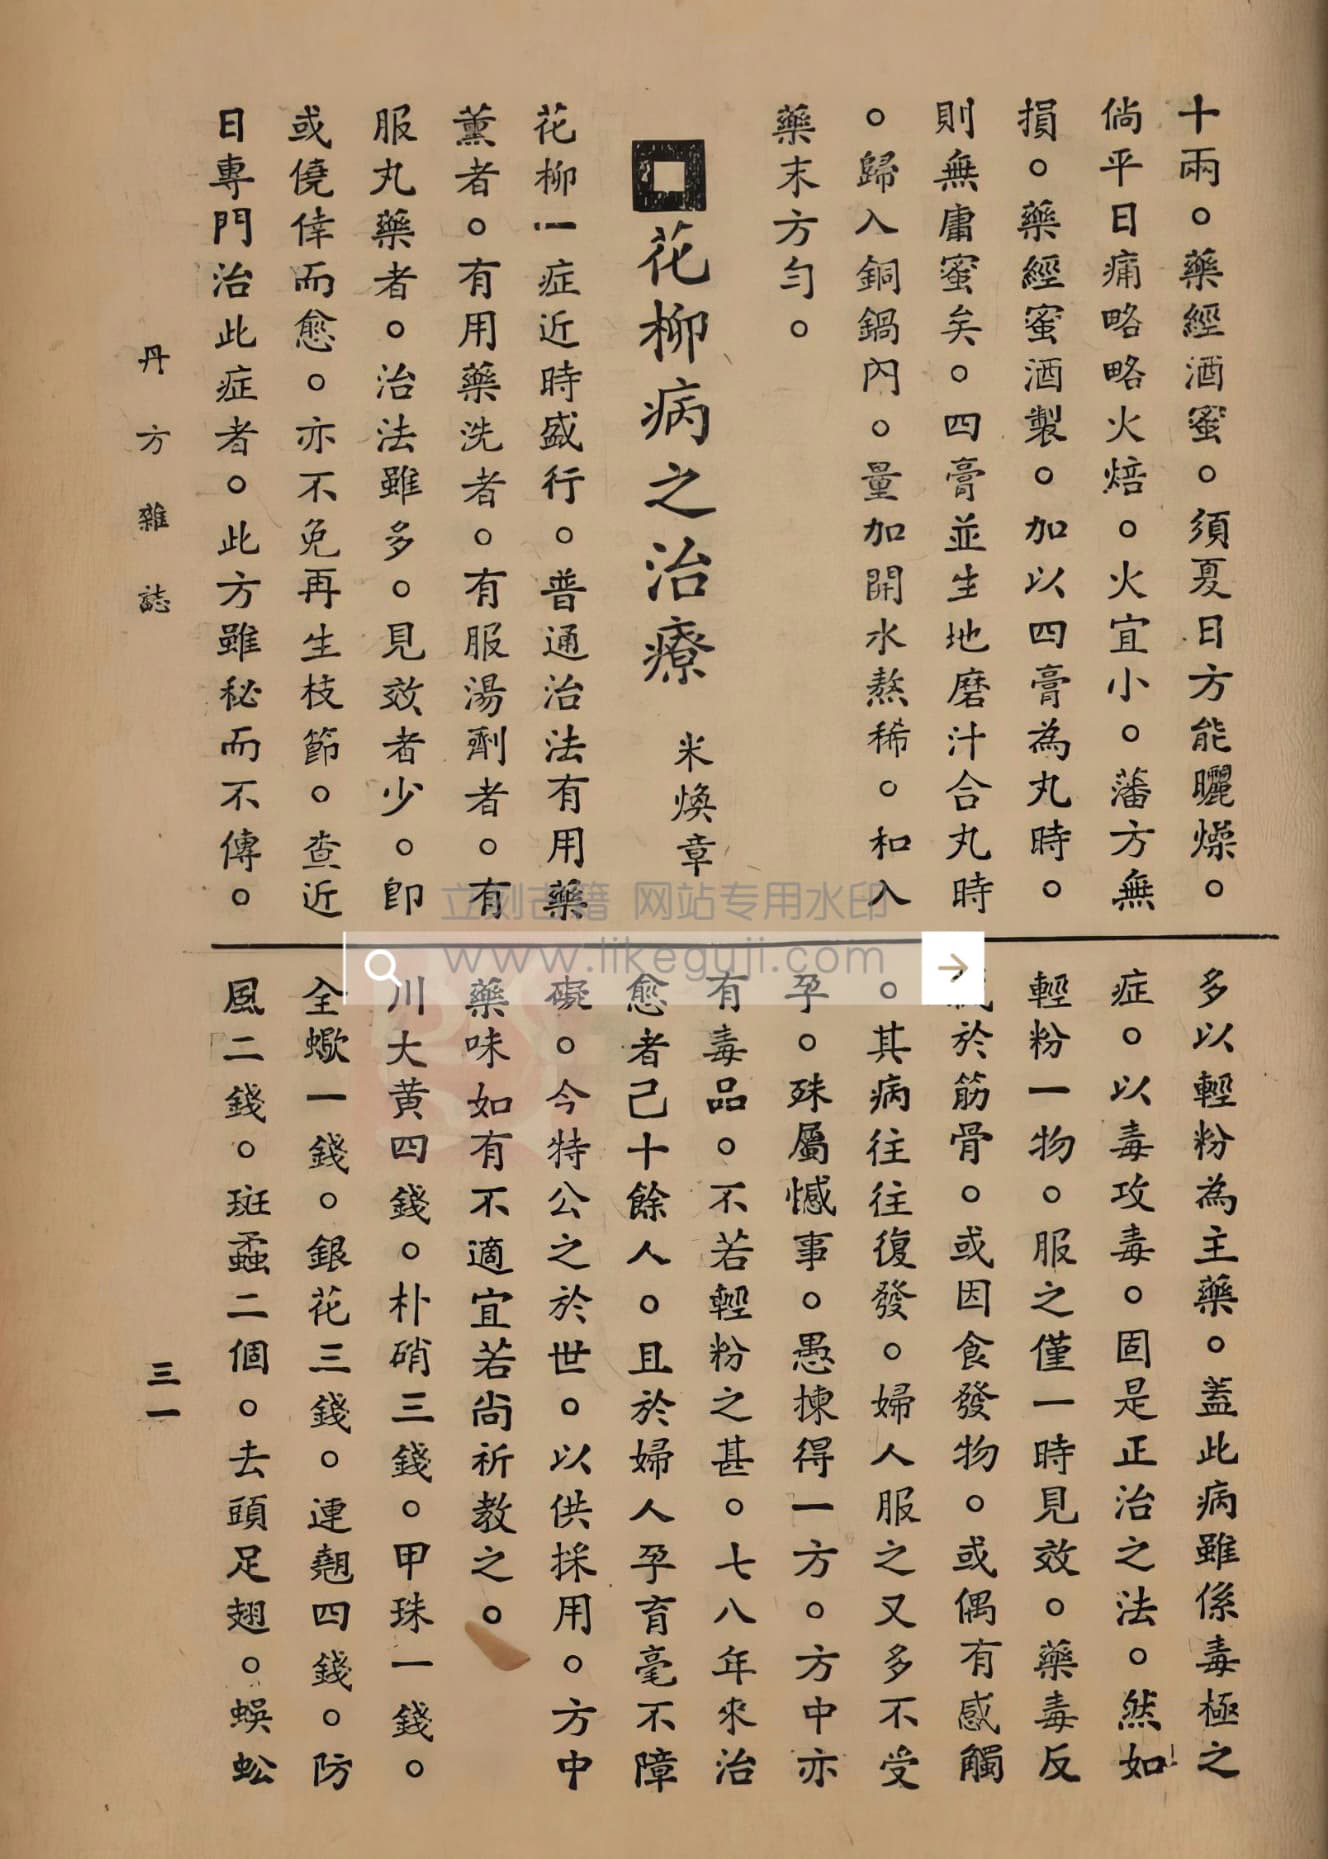 十兩。藥經酒蜜。須夏日方能曬燥。
倘平日痛略略火焙。火宜小。藩方無
損。藥經蜜酒製。加以四膏為丸時。
則無庸蜜矣。四膏並生地磨汁合丸時
。歸入銅鍋內。量加開水熬稀。和入
藥末方勻。
花柳病之治療 米煥章
花柳一症近時盛行。普通治法有用藥
薰者。有用藥洗者。有服湯劑者。有
服丸藥者。治法雖多。見效者少。即
或僥倖而愈。亦不免再生枝節。查近
日專門治此症者。此方雖秘而不傳。
多以輕粉為主藥。蓋此病雖係毒極之
症。以毒攻毒。固是正治之法。然如
輕粉一物。服之僅一時見效。藥毒反
於筋骨。或因食發物。或偶有感觸
。其病往往復發。婦人服之又多不受
孕。殊屬憾事。愚揀得一方。方中亦
有毒品。不若輕粉之甚。七八年來治
愈者已十餘人。且於婦人孕育毫不障
礙。今特公之於世。以供採用。方中
藥味如有不適宜若尚祈教之。
川大黄四錢。朴硝三錢。甲珠一錢。
全蠍一錢。銀花三錢。連翹四錢。防
風二錢。斑蝥二個。去頭足翅。蜈蚣
丹方雜誌
三一
立刻古籍 网站专用水印
www.likeguji.com